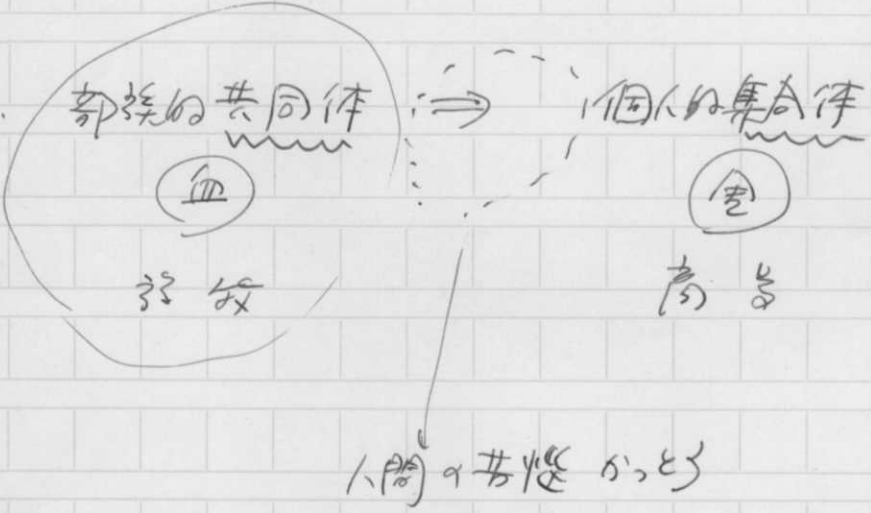 部族的共同体 ⇒ 個人的集合体
血 金
遊牧 商業
人間の苦悩 かっとう